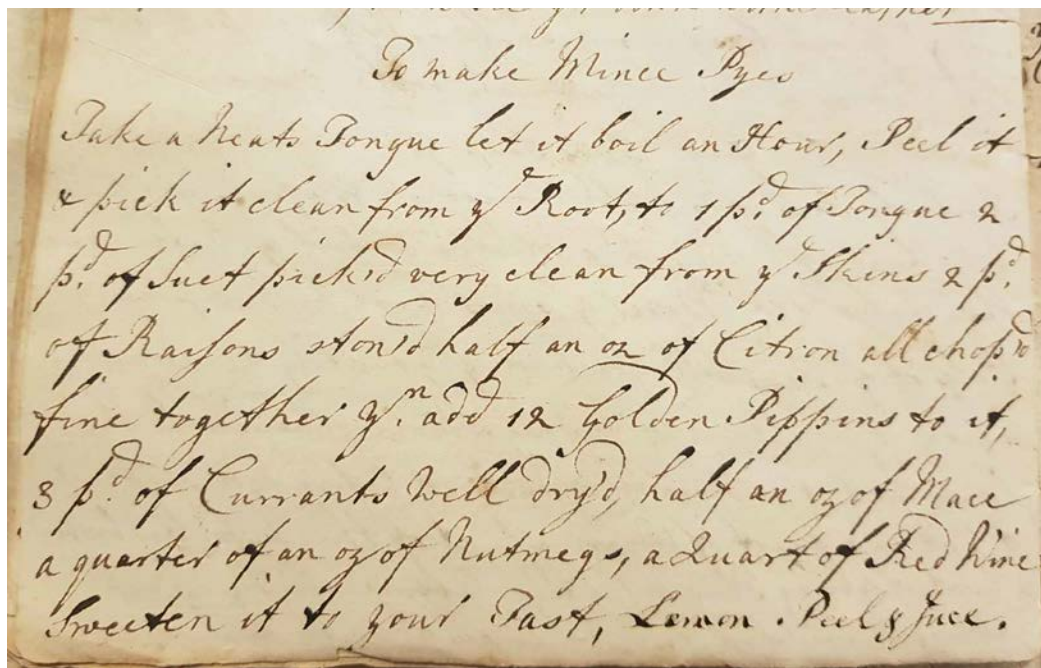 To make Mince Pyes
Take a Neats Tongue let it boil an Hour, Peel it
& pick it clean from yᵉ Root, to 1 pᵈ. of Tongue 2
pᵈ. of Suet pick'd very clean from yᵉ Skins 2 pᵈ.
of Raisons ston'd half an oz of Citron all chop'd
fine together yⁿ. add 12 Golden Pippins to it,
3 pᵈ. of Currants Well dry'd, half an oz of Mace
a quarter of an oz of Nutmegs, a Quart of Red Wine
Sweeten it to your Tast, Lemon Peel & Juce.